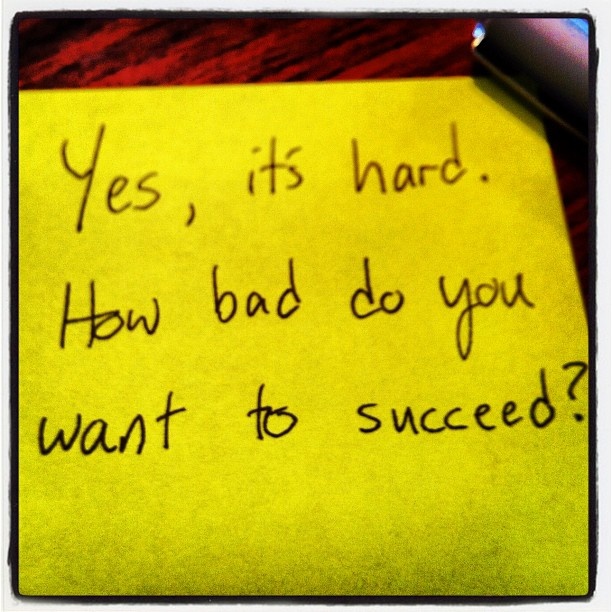 Yes, it's hard.
How bad do you
want to succeed?